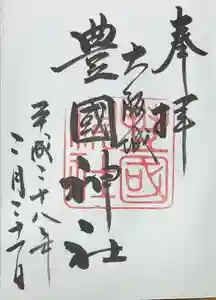 奉拝
大阪城
豊國神社
平成二十八年
二月二十一日